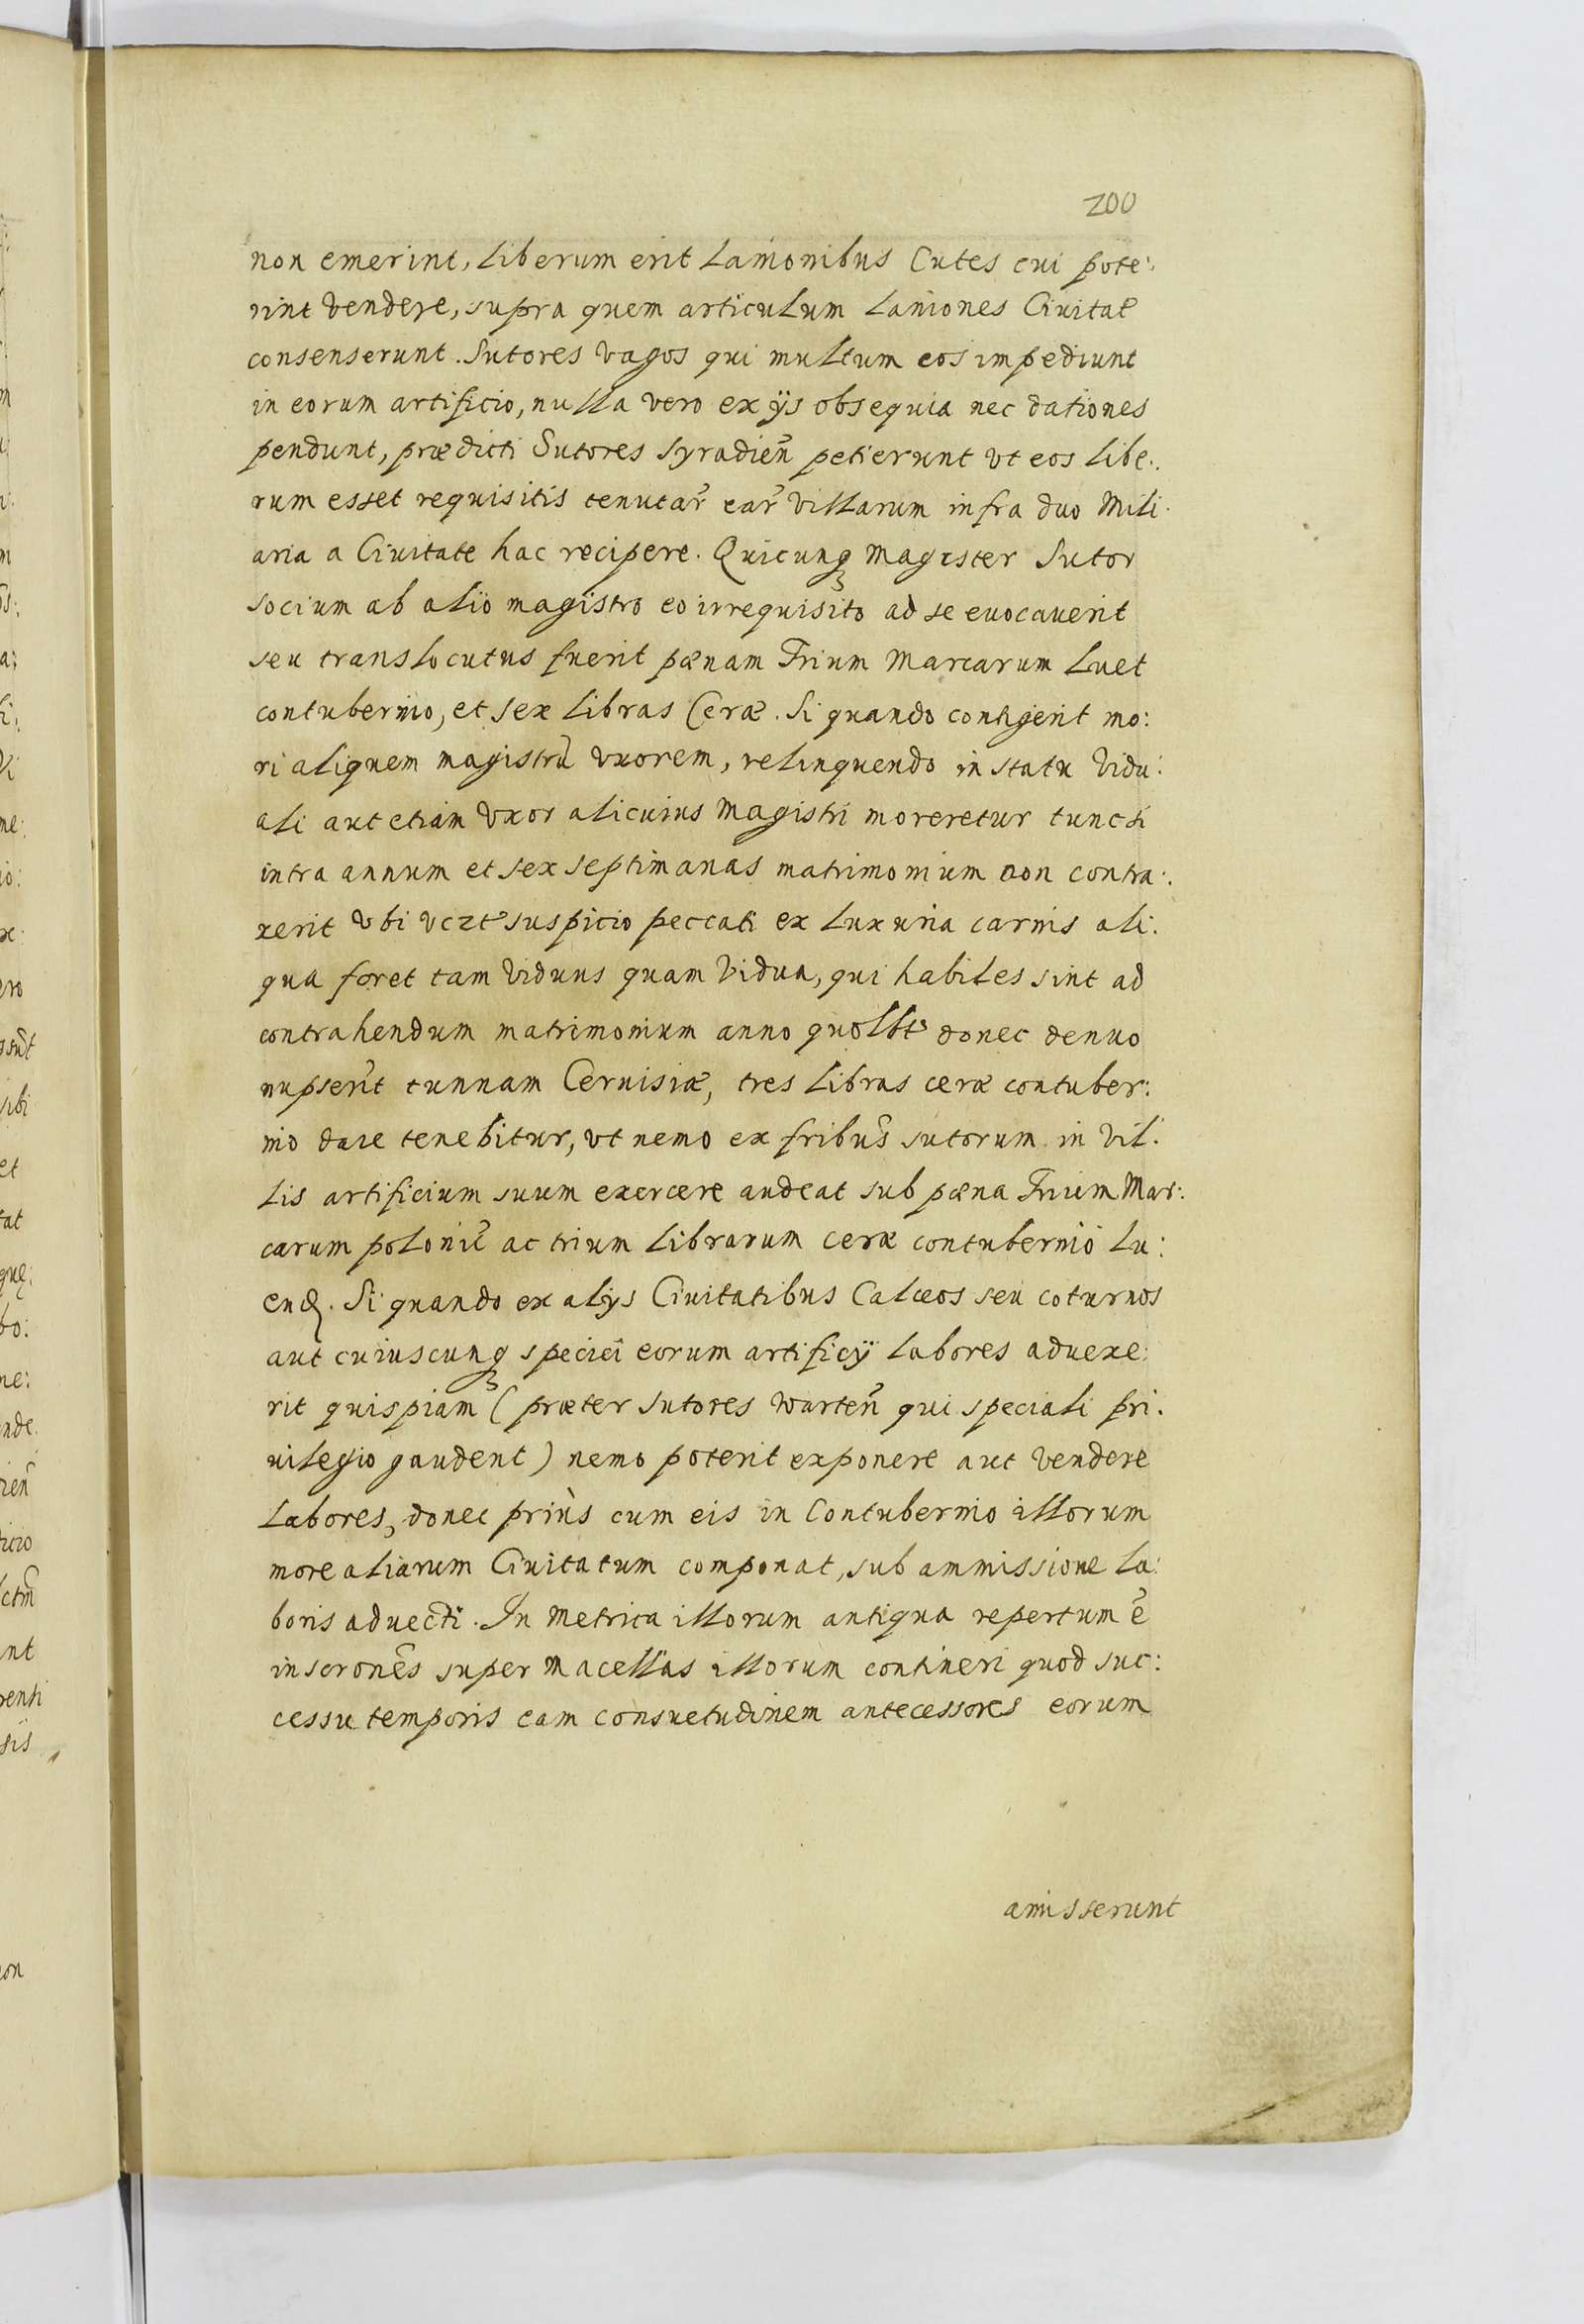 200
non emerint, liberum erit Lanionibus Cutes cui pote:
rint vendere, supra quem articulum laniones Ciuitat̃
consenserunt. Sutores vagos qui multum eos impediunt
in eorum artificio, nulla vero ex ijs obsequia nec dationes
pendunt, prædicti Sutores Syradieñ petierunt vt eos libe:
rum esset requisitis tenutar̃ ear̃ villarum infra duo Mili:
aria a Ciuitate hac recipere. Quicunq3 Magister Sutor
socium ab alio magistro eo irrequisito ad se euocauerit
seu translocutus fuerit pænam Trium Marcarum luet
contubernio, et sex libras Ceræ. Si quando contigerit mo:
ri aliquem magistrũ vxorem, relinquendo in statu vidu:
ali aut etiam Vxor alicuius Magistri moreretur tunc si
intra annum et sex septimanas matrimonium non contra:
xerit vbi vczt suspicio peccati ex luxuria carnis ali:
qua foret tam viduus quam vidua, qui habiles sint ad
contrahendum matrimonium anno quolbt donec denuo
nupserit tunnam Ceruisiæ, tres libras ceræ contuber:
nio dare tenebitur, vt nemo ex fribus̃ sutorum in vil:
lis artificium suum exercere audeat sub pæna Trium Mar:
carum poloniẽ ac trium librarum ceræ contubernio lu:
end. Si quando ex alijs Ciuitatibus Calceos seu coturnos
aut cuiuscunq3 speciei eorum artificij labores aduexe:
rit quispiam (præter sutores Warteñ qui speciali pri:
uilegio gaudent) nemo poterit exponere aut vendere
labores, donec priùs cum eis in Contubernio illorum
more aliarum Ciuitatum componat, sub ammissione la:
boris aduecti. In Metrica illorum antiqua repertum ẽ
inscronẽs super Macellas illorum contineri quod suc:
cessu temporis eam consuetudinem antecessores eorum
amisserunt